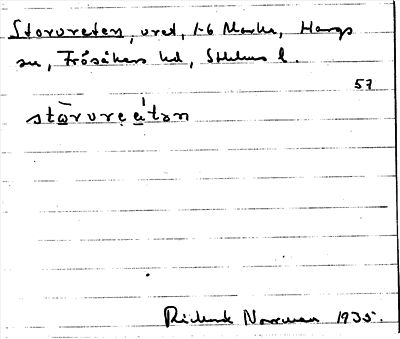 Storvreten, vret, 1-6 Marka, Hargs
sn, Frösåkers hd, Sthlms l.
57
stòrvreátən
Rickard Norrman 1935.